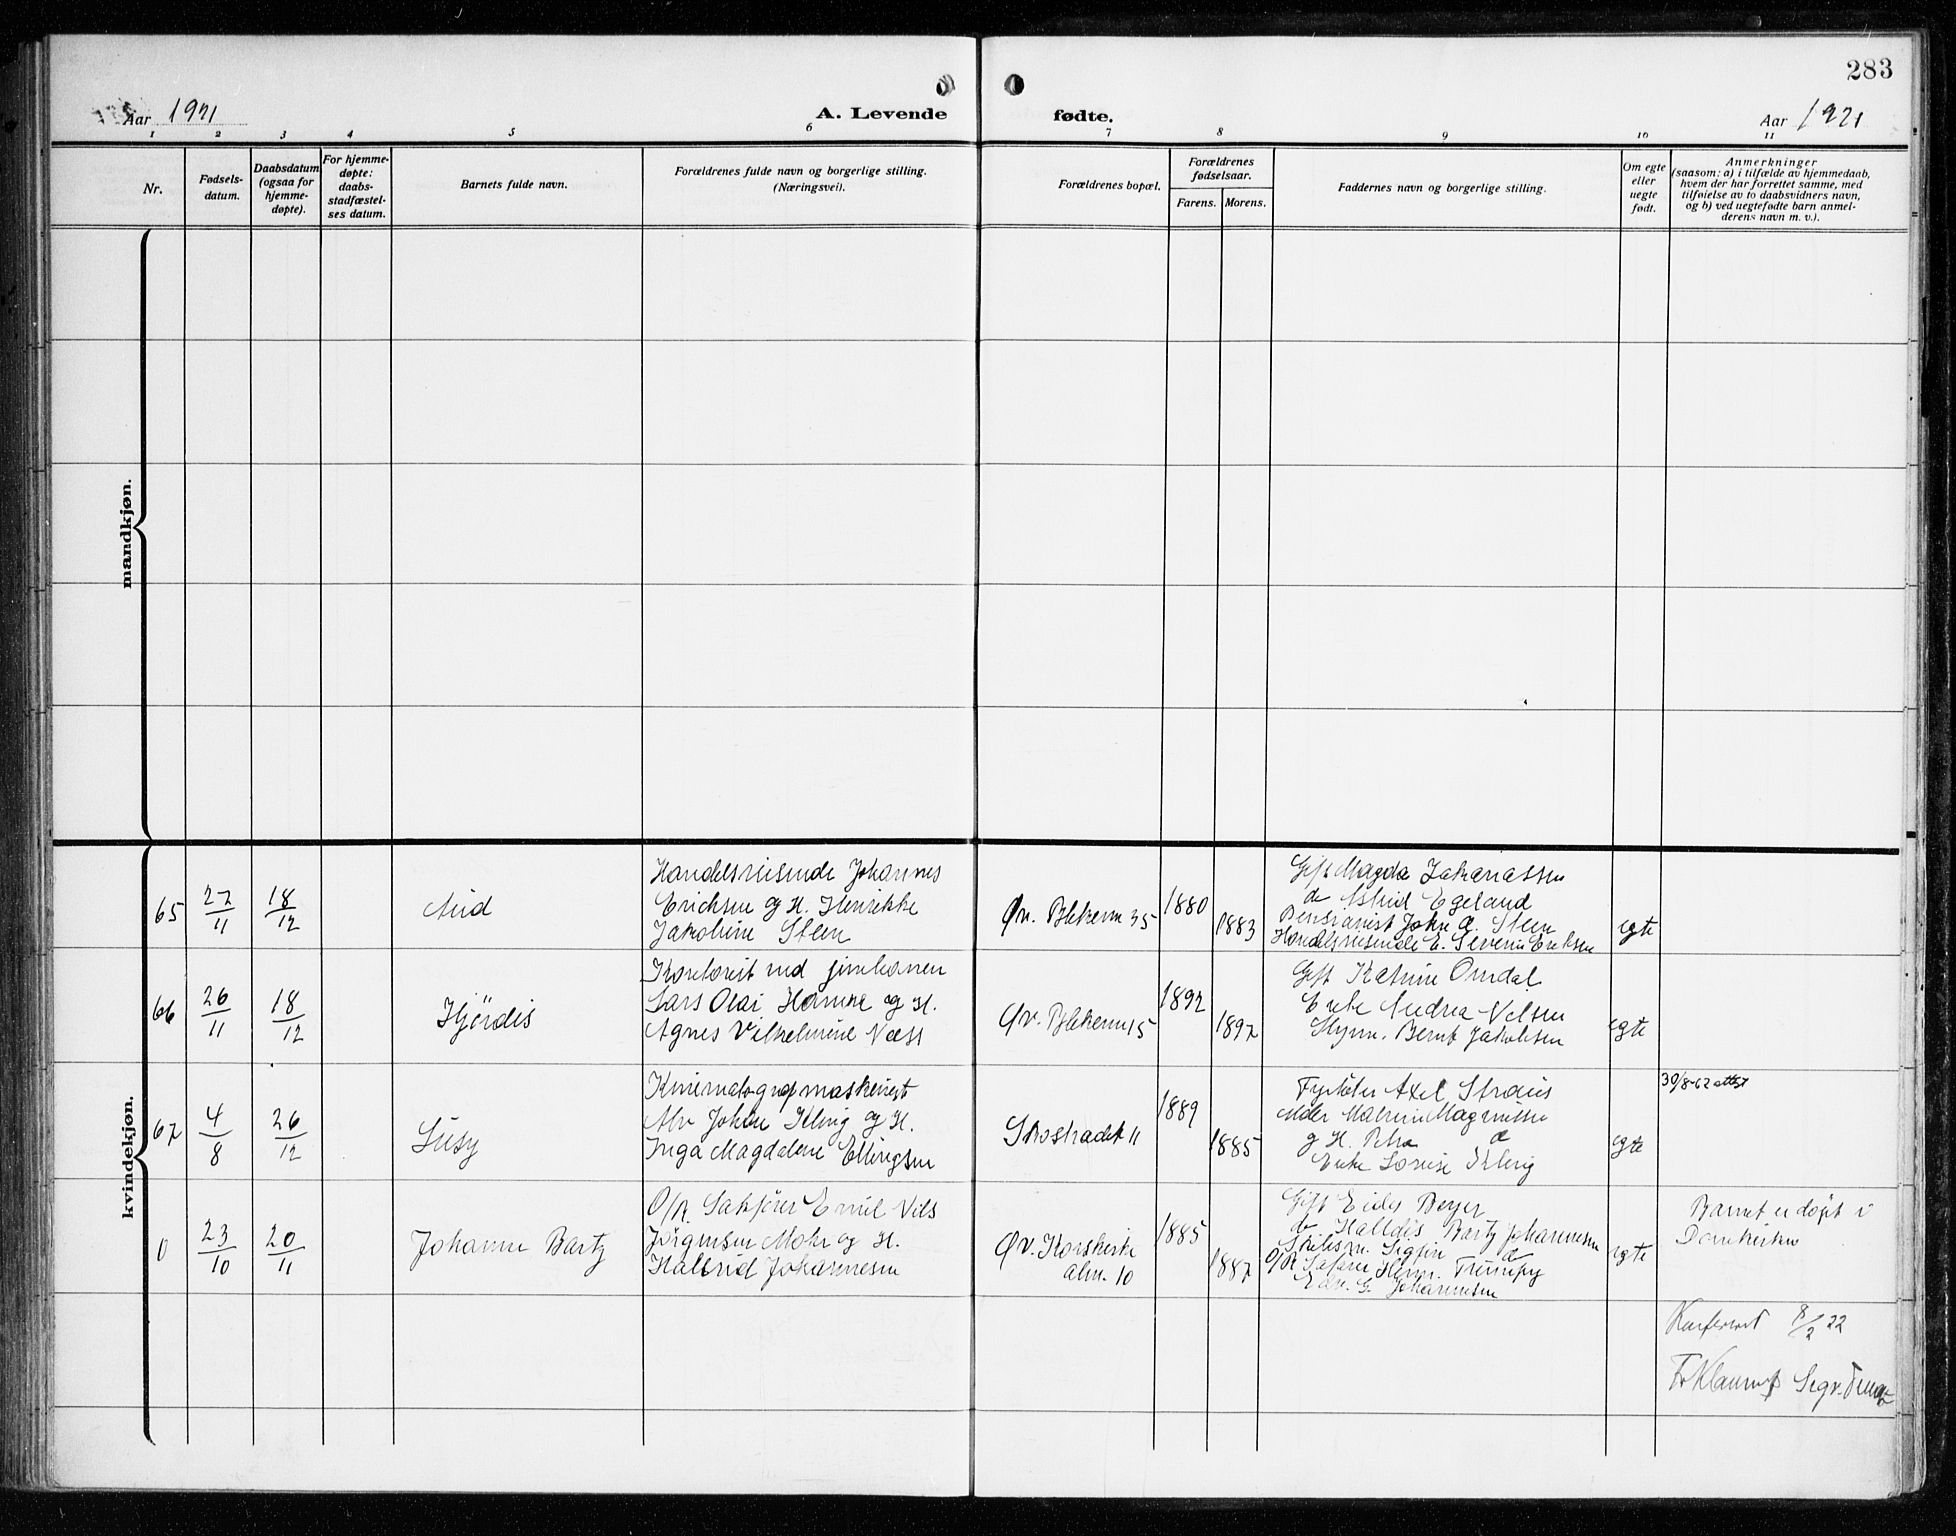 283
Aar 1921
A. Levende
fødte.
Aar 1921
1 2 3 4 5 6 7 8 9 10 11
Nr.
Fødsels-
datum.
Daabsdatum
(ogsaa for
hjemme-
døpte).
For hjemme-
døpte:
daabs-
stadfæstel-
ses datum.
Barnets fulde navn.
Forældrenes fulde navn og borgerlige stilling.
(Næringsvei).
Forældrenes bopæl.
Forældrenes
fødselsaar.
Farens. Morens.
Faddernes navn og borgerlige stilling.
Om egte
eller
uegte
født.
Anmerkninger
(saasom: a) i tilfælde av hjemmedaab,
hvem der har forrettet samme, med
tilføielse av to daabsvidners navn,
og b) ved uegtefødte barn anmel-
derens navn m. v.).
mandkjøn.
kvindekjøn.
65
27/11
18/12
Aud
Handelsreisende Johannes
Erichsen og H. Henrikke
Jakobine Steen
Øv. Blekevn 35
1880
1883
Gift Magda Johanassen
do Astrid Egeland
John Steen
Handelsreisende E. Severin Eriksen
egte
66
26/11
18/12
Hjørdis
Kontorist ved
Lars Olai Hamre og H.
Agnes Vilhelmine Næss
Øv. Blekevn 15
1892
1897
Gift Katrine Omdal
Enke Andrea Nelsen
Styrm. Bernt Jakobsen
egte
67
4/8
26/12
Susy
Kinematografmaskinist
Alv Johan Kling og H.
Inga Magdalene Ellingsen
Skostrædet 11
1889
1885
Fyrbøter Axel Straus
Maler Magnussen
og H. Petra do
Enke Lovise Kling
egte
30/8-62 attest
0
23/10
20/11
Johanne Bartz
O/R. Sakfører Emil Nils
Jørgensen Mohr og H.
Halfrid Johannesen
Øv. Korskirke
alm. 10
1885
1887
Gift Beyer
do Halldis Bartz Johannesen
Skibsm. do
O/R. Herm. Trumpy
Edv. G. Johannesen
egte
Barnet er døpt i
Domkirken
Konferert 8/2 22